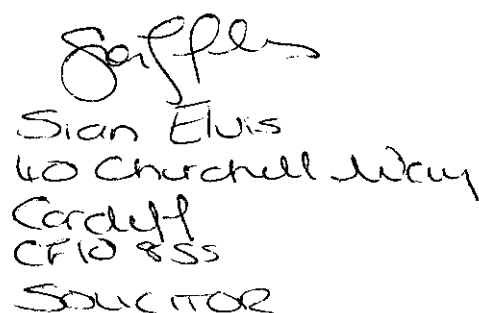 Sian Elvis
40 Churchill Way
Cardiff
CF10 8SS
SOLICITOR